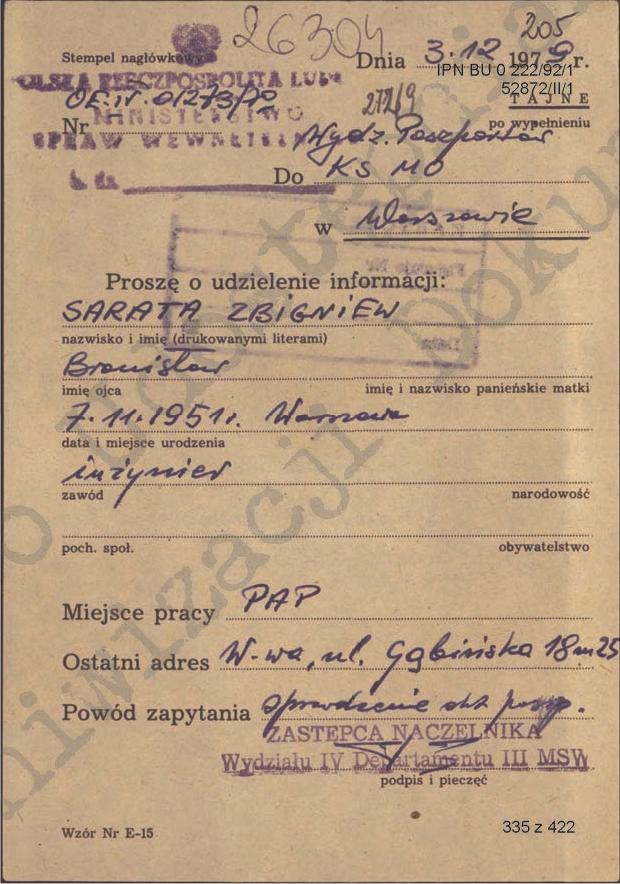 205
26304
Stempel nagłówkowy
Dnia 3.12 1979 r.
IPN BU 0 222/92/1
52872/II/1
POLSKA RZECZPOSPOLITA LUDOWA
TAJNE
po wypełnieniu
MINISTERSTWO
Nr
SPRAW WEWNĘTRZNYCH
Wydz. Paszportów
Do KS MO
w Warszawie
Proszę o udzielenie informacji:
SARATA ZBIGNIEW
nazwisko i imię (drukowanymi literami)
Bronisław
imię ojca
imię i nazwisko panieńskie matki
7.11.1951r. Warszawa
data i miejsce urodzenia
inżynier
zawód
narodowość
poch. społ.
obywatelstwo
Miejsce pracy PAP
Ostatni adres W-wa, ul. Gąbińska 18 m 25
Powód zapytania sprawdzenie akt pasp.
ZASTĘPCA NACZELNIKA
Wydziału IV Departamentu III MSW
podpis i pieczęć
Wzór Nr E-15
335 z 422